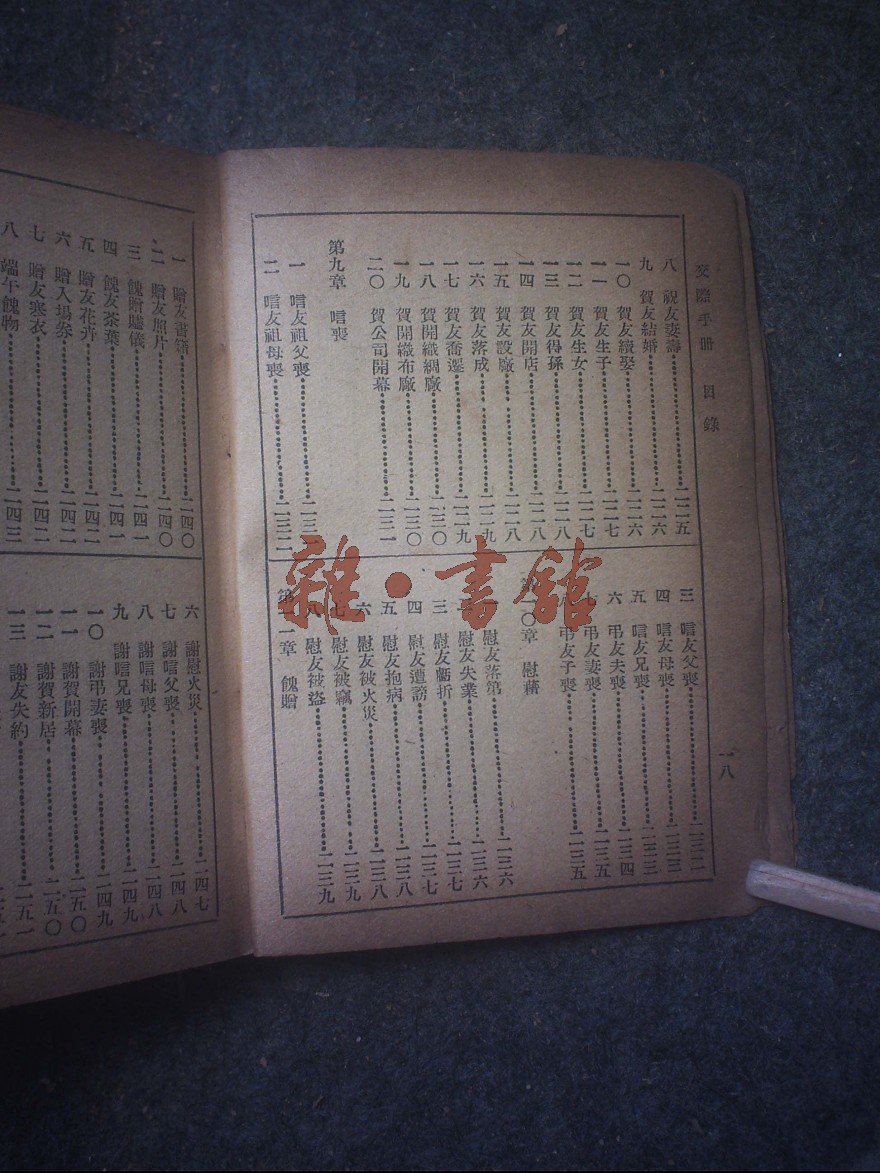 交際手册 目錄
一八
八 祝友妻壽 二二五
九 賀友結婚 二二六
一〇 賀友續娶 二二六
一一 賀友生子 二二七
一二 賀友生女 二二七
一三 賀友得孫 二二八
一四 賀友開店 二二八
一五 賀友設廠 二二八
一六 賀友落成 二二九
一七 賀友喬遷 二二九
一八 賀開織綢廠 二三〇
一九 賀開織布廠 二三〇
二〇 賀公司開幕 二三一
第九章 唁喪
一 唁友祖父喪 二三一
二 唁友祖母喪 二三二
三 唁友父喪 二三二
四 唁友母喪 二三三
五 唁友兄喪 二三三
六 弔友夫喪 二三四
七 弔友妻喪 二三五
八 弔友子喪 二三五
第一〇章 慰藉
一 慰友落第 二三六
二 慰友失業 二三六
三 慰友虧折 二三七
四 慰友遭謗 二三七
五 慰友抱病 二三八
六 慰友被火災 二三八
七 慰友被竊 二三九
八 慰友被盜 二三九
第一一章 餽贈
一 贈友書籍 二四〇
二 贈友照片 二四〇
三 餽贈贐儀 二四一
四 餽友茶葉 二四一
五 贈友花卉 二四二
六 贈入場券 二四二
七 贈友寒衣 二四三
八 端午餽物
六 謝慰火災 二四七
七 謝唁父喪 二四八
八 謝唁母喪 二四八
九 謝唁兄喪 二四九
一〇 謝弔妻喪 二四九
一一 謝賀開幕 二五〇
一二 謝賀新居 二五〇
一三 謝友失約 二五一
雜·書館